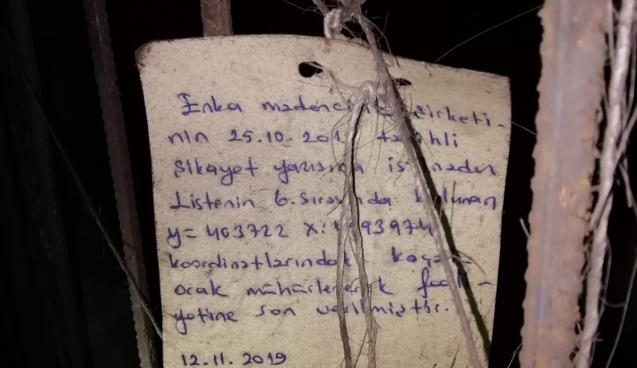 Enka şirketi-
nin 25.10.201 tarihli
Şikayet yazısına isnaden
Listenin 6.sırasında bulunan
y=403722 X:
koordinatlarındaki kaçak
ocak mühürlenerek faali-
yetine son verilmiştir.
12.11.2019